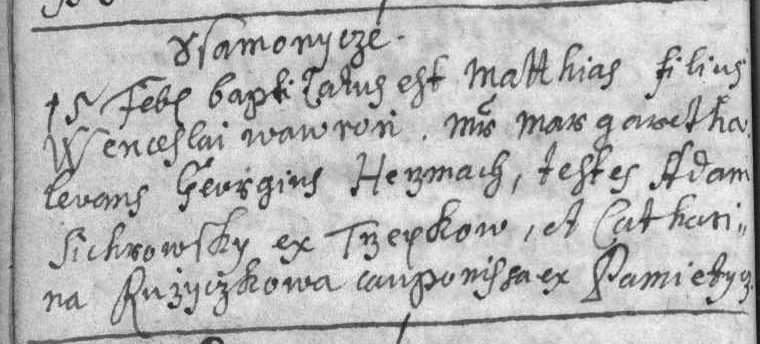 Samonycze.
15 Feb baptizatus est Matthias filius
Wenceslai wawron. mr Margaretha
levans Georgius Hezmach, testes Adam
Sichrowsky ex Trzepkow, et Cathari„
na Ružyczkowa cauponissa ex Pamietycz